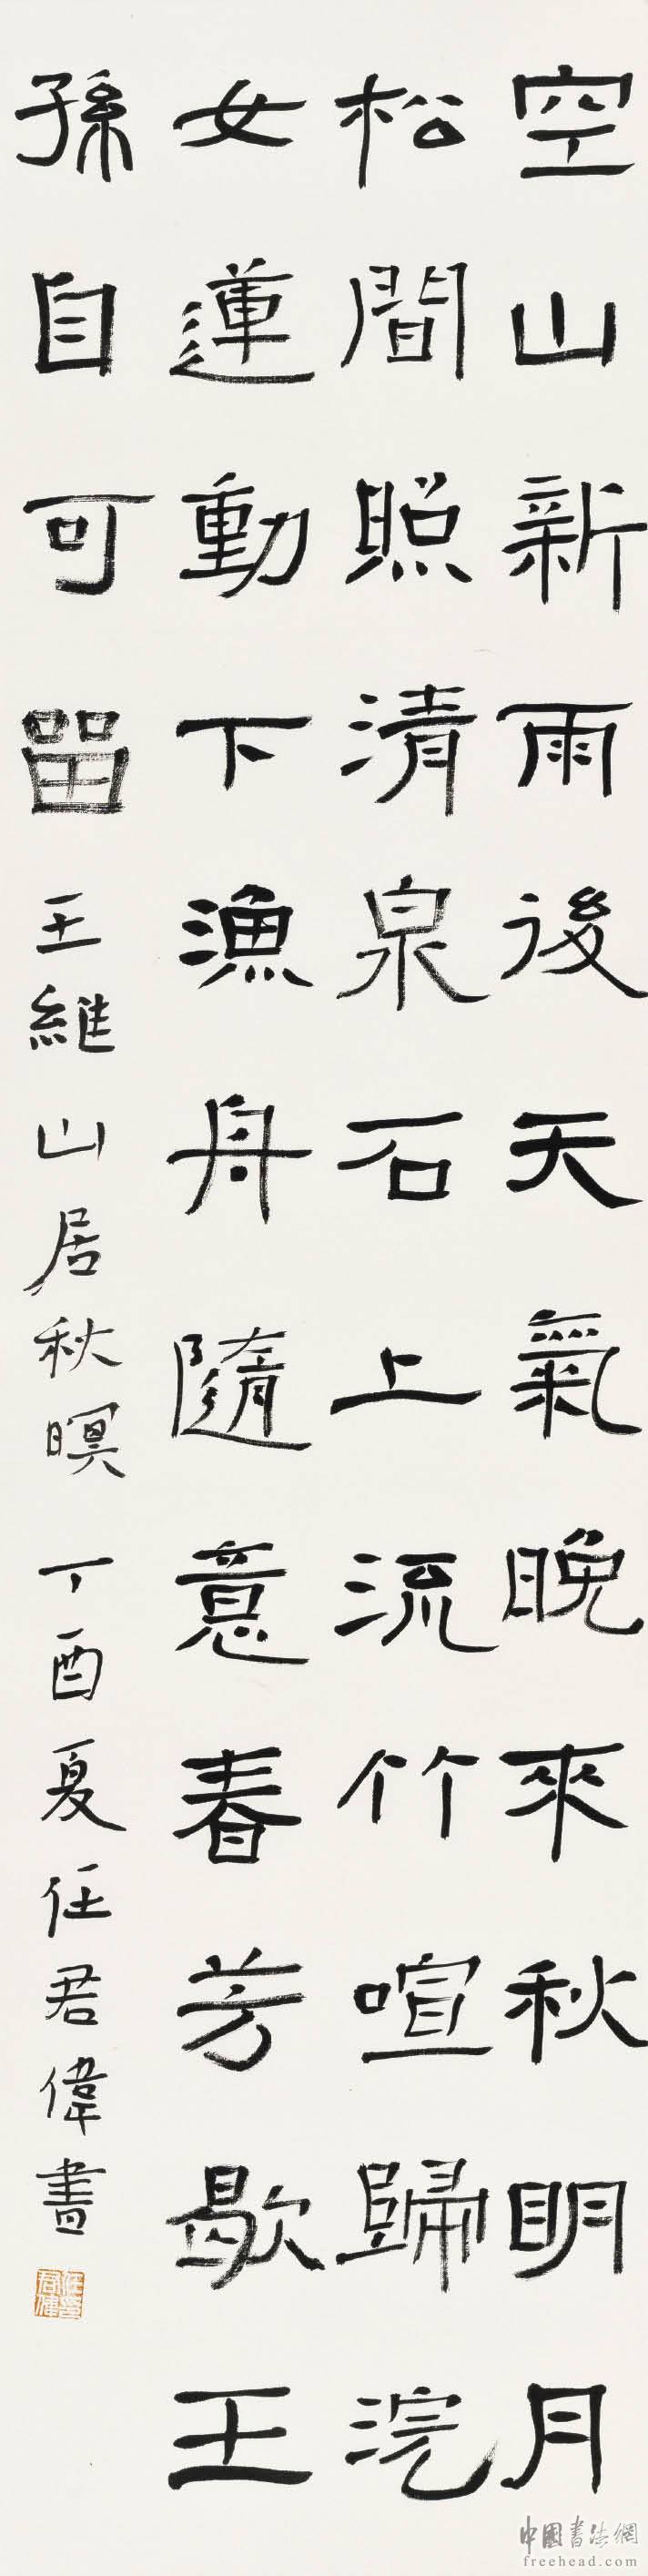 空山新雨後天氣晚來秋明月
松間照清泉石上流竹喧歸浣
女蓮動下漁舟隨意春芳歇王
孫自可留 王維山居秋暝 丁酉夏任君偉書
中国书法网
freehead.com